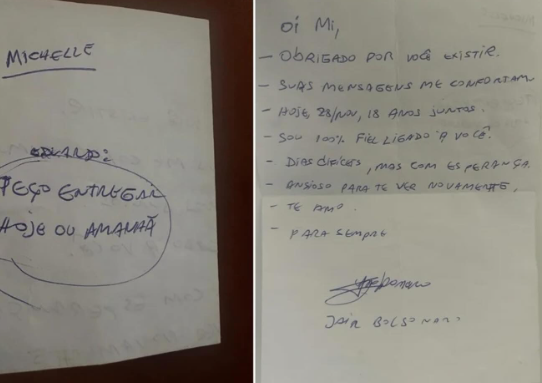 MICHELLE
EDUARDO:
PEÇO ENTREGAR
HOJE OU AMANHÃ
OI MI,
- OBRIGADO POR VOCÊ EXISTIR.
- SUAS MENSAGENS ME CONFORTAM
- HOJE, 28/NOV, 18 ANOS JUNTOS.
- SOU 100% FIEL LIGADO A VOCÊ.
- DIAS DIFÍCEIS, MAS COM ESPERANÇA.
- ANSIOSO PARA TE VER NOVAMENTE,
- TE AMO.
- PARA SEMPRE
JAIR BOLSONARO